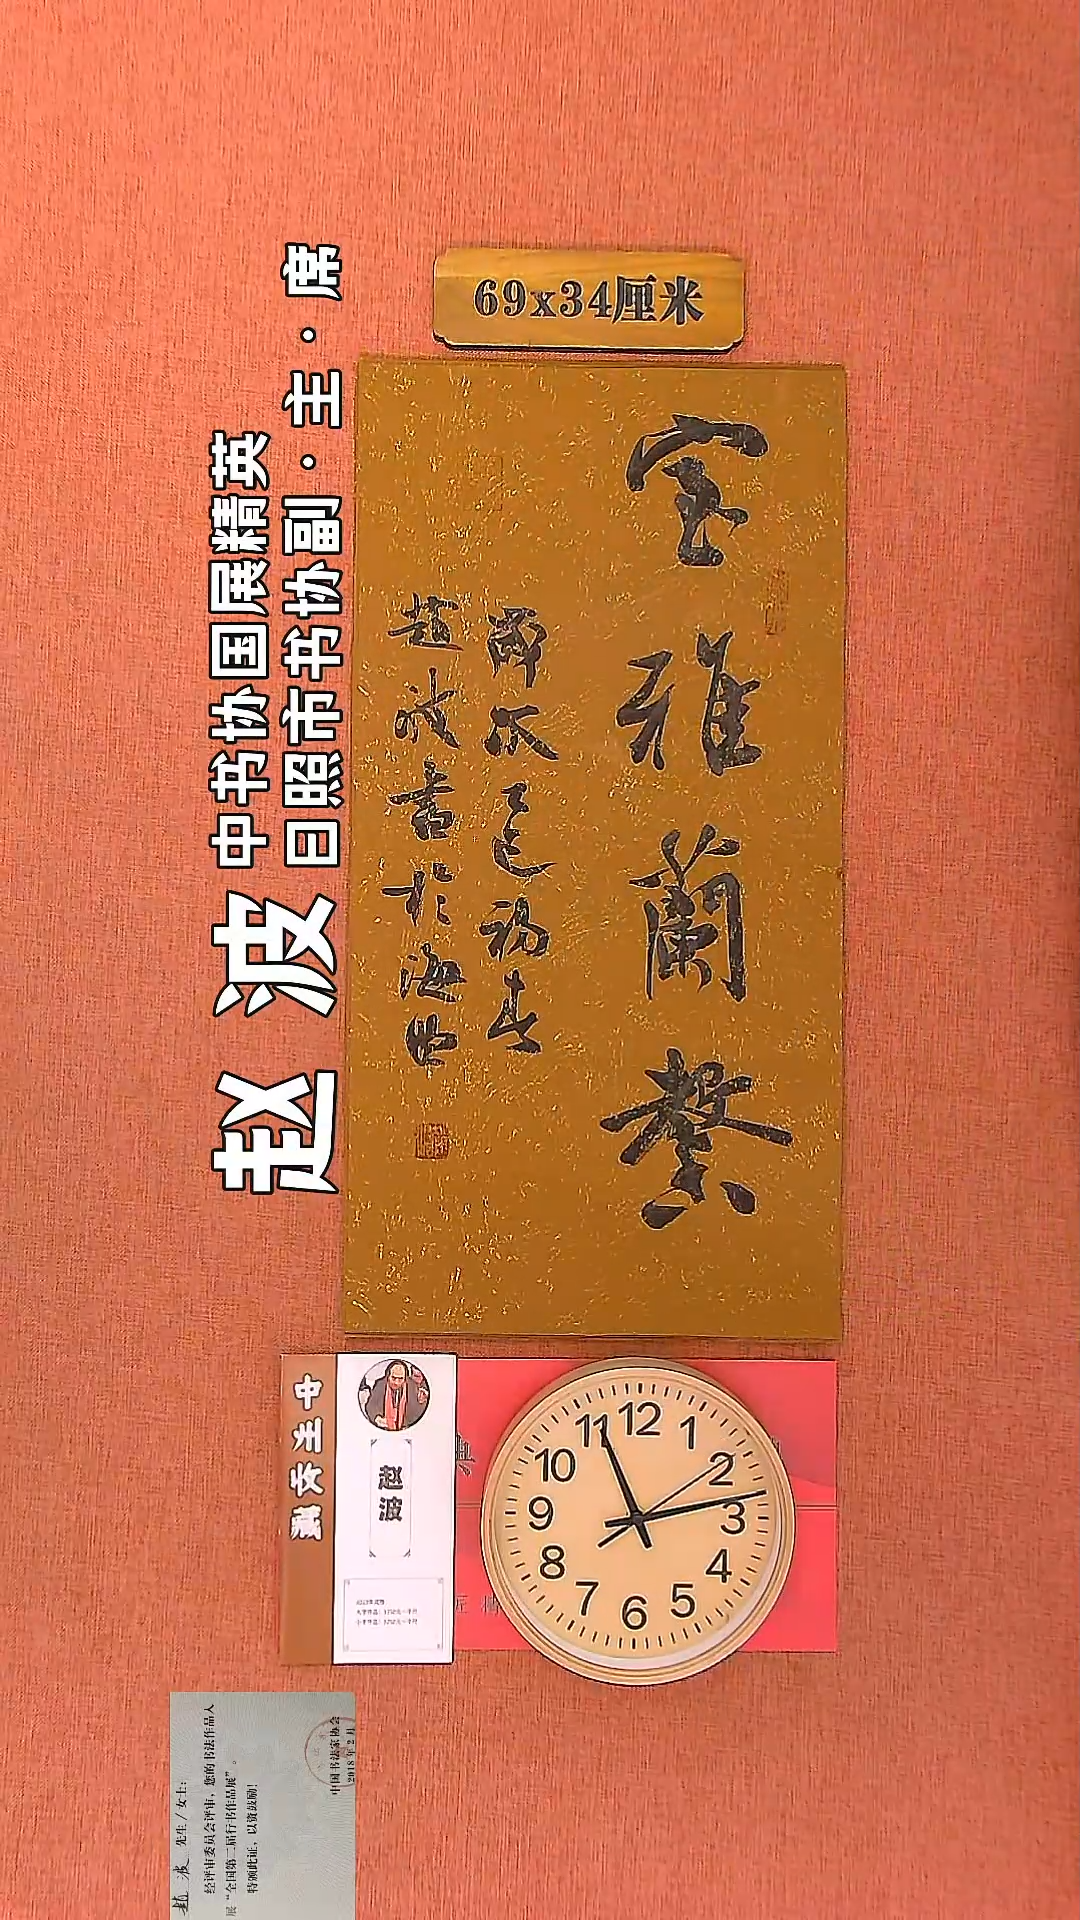 69x34厘米
中书协国展精英
日照市书协副·主·席
赵波
室雅蘭馨
歲次乙巳初春
趙波書於海曲
赵波
12
1
2
3
4
5
6
7
8
9
10
11
趙波 先生/女士:
经评审委员会评审,您的书法作品入
展“全国第二届行书作品展”。
特颁此证,以资鼓励!
中国书法家协会
2018年2月